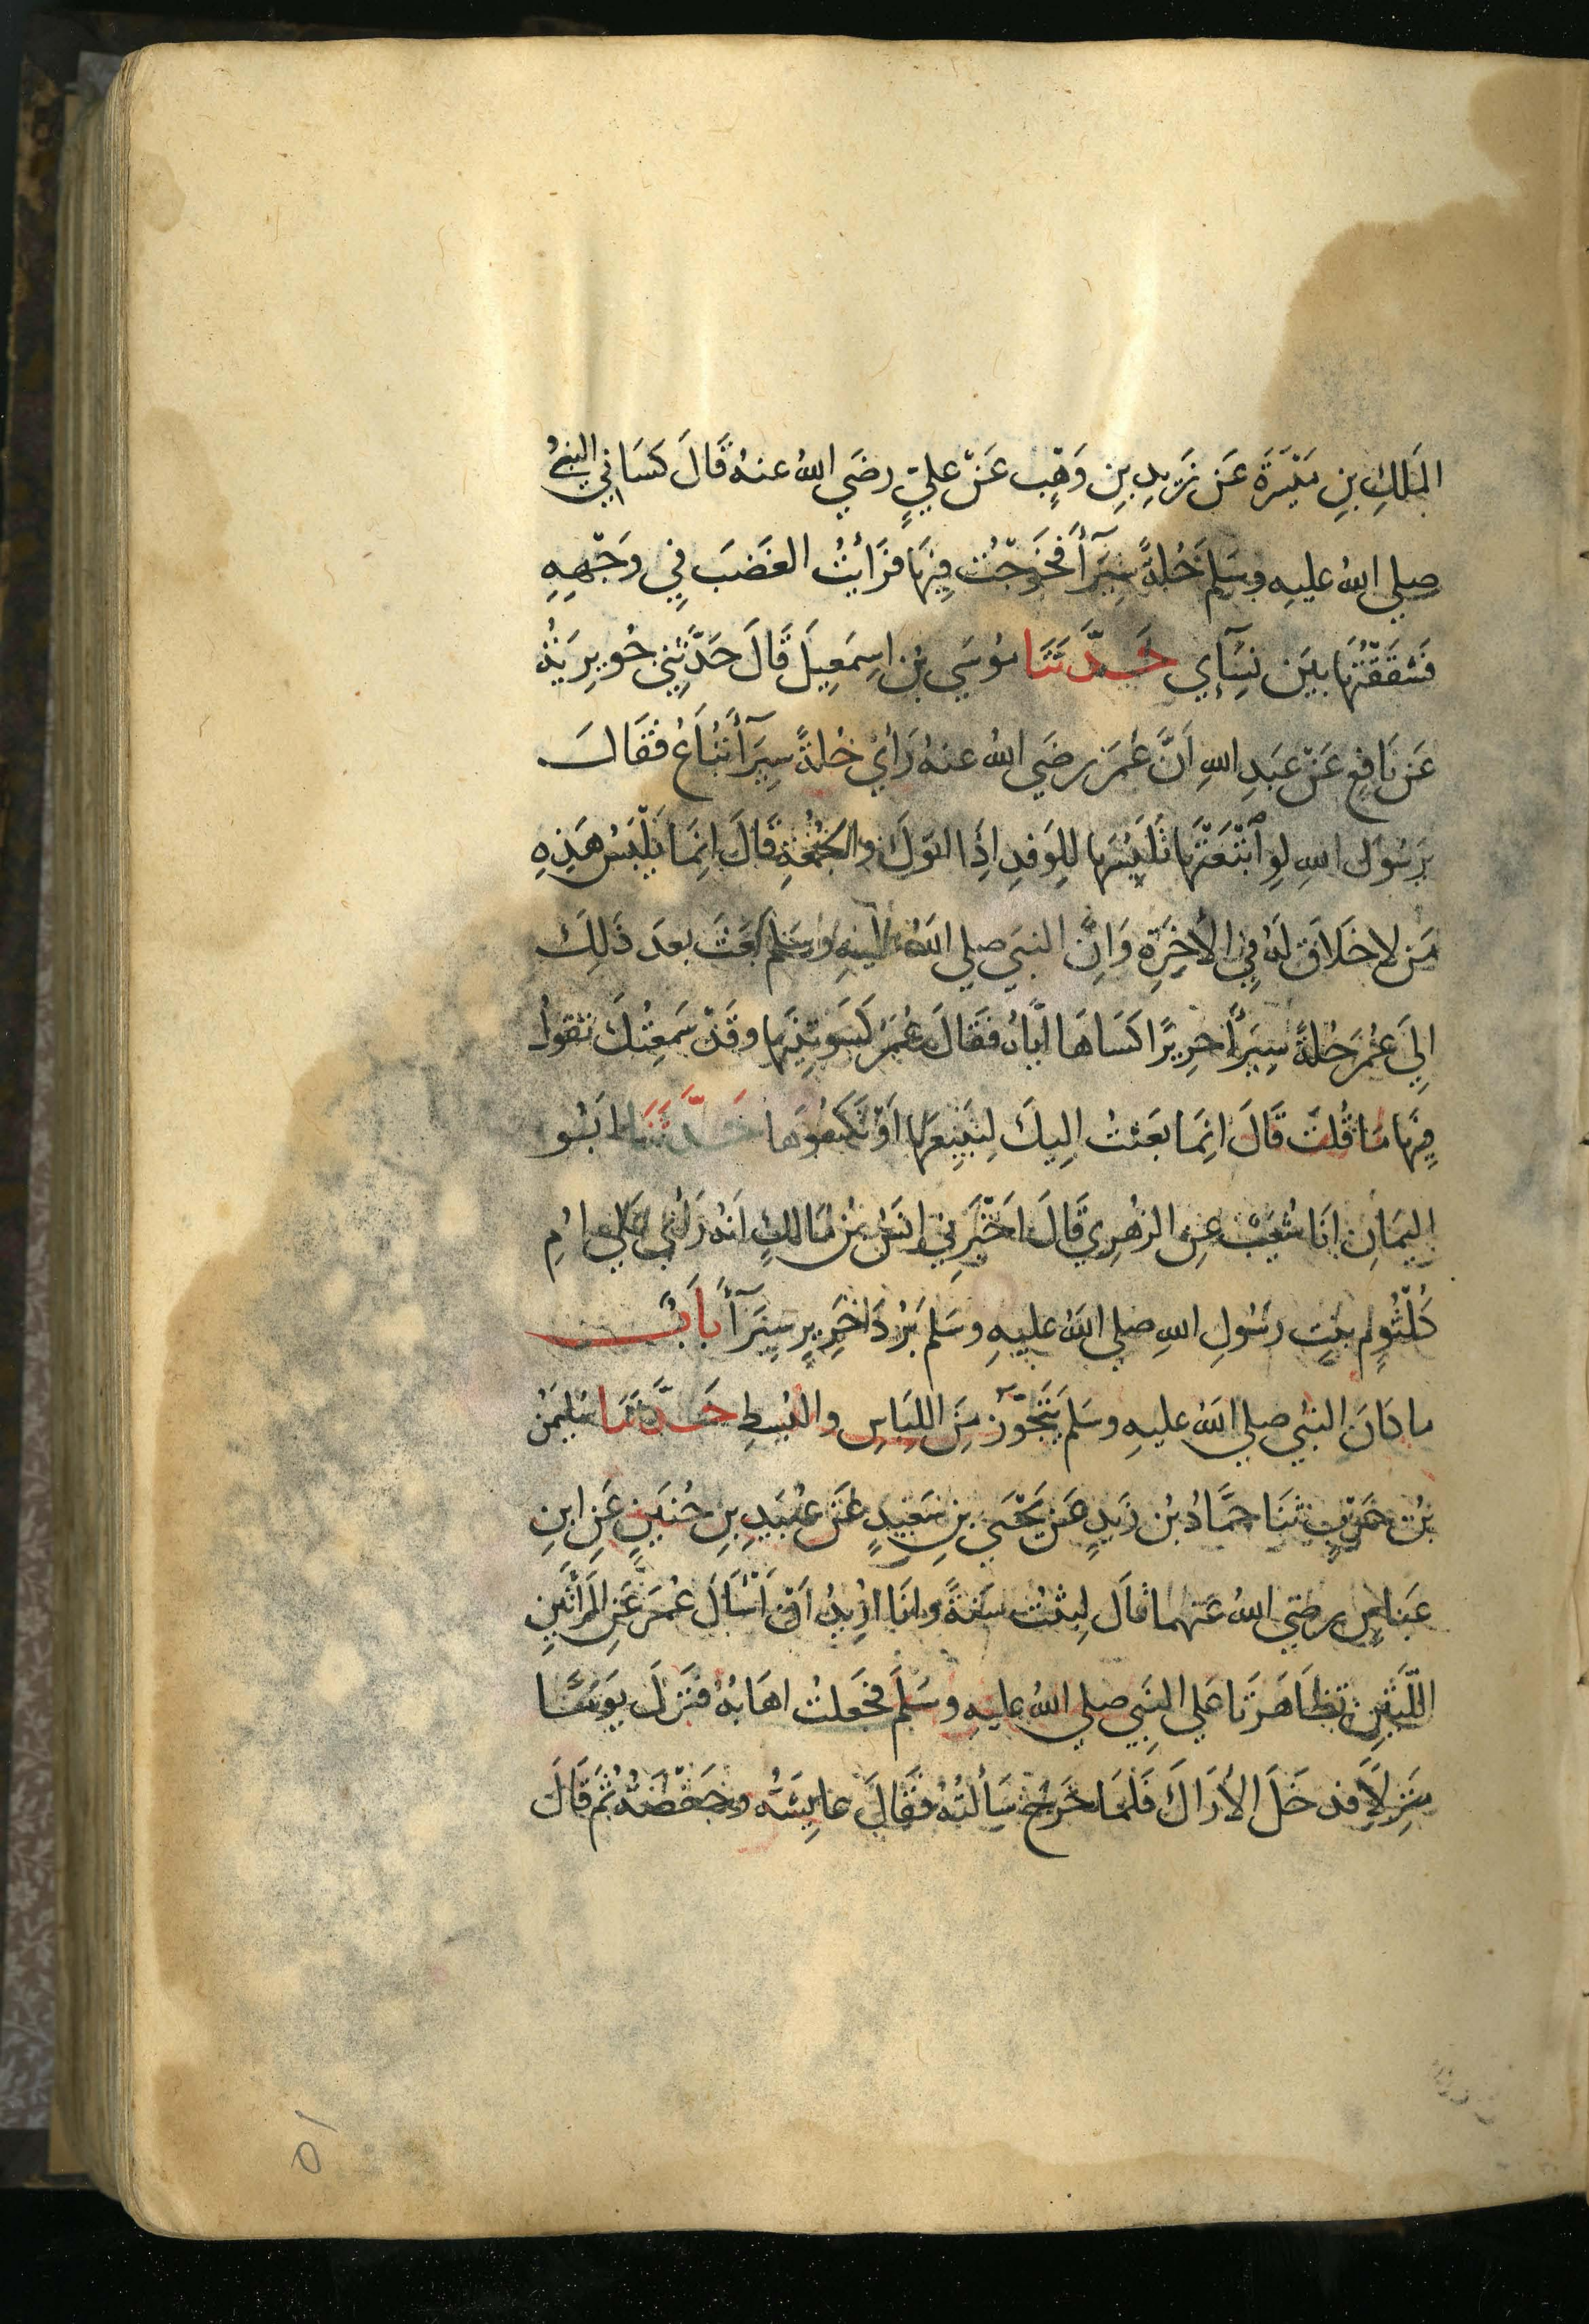 المَلِكِ بنِ مَيْسَرَةَ عَن زَيدِ بنِ وَهْبٍ عَنْ عليٍّ رضَي اللهُ عنهُ قَالَ كَسَاني النبيُّ
صلي اللهُ عليهِ وسَلم حُلةً سِيَرَآءَ فخَرَجْتُ فِيهَا فرَأيْتُ الغَضَبَ فِي وَجْهِهِ
فشَقَقْتُهَا بيَن نِسَآءِي حَدَّثَنَا مُوسَي بْن اسِمَعِيلَ قَالَ حَدَّثنِي جُوَيرِيَةُ
عَن نَافِع عَنْ عَبدِ اللهِ اَنَّ عُمَرَ رضَي اللهُ عنهُ رَأي حُلةً سِيَرَآءَ تُبَاعُ فقَالَ
يرَسُولَ اللهِ لوِ ابْتَعْتَهَا تَلبَسُهَا للِوَفدِ اذَِا اتوَكَ والجُمُعَةِ قَالَ انِمَا يَلْبَسُ هَذِهِ
مَن لا خَلَاقَ لهُ فِي الأخِرَةِ وَانَِّ النبيَ صلي اللهُ عليهِ وسَلم بَعَثَ بعدَ ذَلِكَ
الِيَ عُمَرَ حُلةً سِيَرَآءَ حرِيرًا كَسَاهَا ايَّاهُ فقَالَ عُمَرُ كَسَوتنِيهَا وقَدْ سَمعِتُكَ تقولُ
فيِهَا مَا قُلتَ قَالَ انِمَا بعَثتُ الِيكَ لِتبِيعَهَا اَوْ تكسُوَهَا حَدَّثَنَا ابَُو
اليمَانِ انَا شُعَيْبٌ عِنِ الزهْرِي قَالَ اخَْبَرَنِي انسَُ بْن مَالكٍ انَهُ رَأي عَلي امُِ
كُلْثُومٍ بنتِ رسُولِ اللهِ صلي اللهُ عليهِ وسَلم بُرْدَ حَرِيرٍ سِيَرَآءَ بَابُ
ما كانَ النبيُ صلي اللهُ عليهِ وسَلم يَتَجَوَّزُ مِنَ اللبَاسِ والبُسطِ حَدَّثنَا سُليمَنُ
بْن حَرْبٍ ثنَا حَمَّادُ بْن زَيدٍ عَن يَحْيَي بنِ سَعِيدٍ عَنْ عبَُيدِ بنِ حُنيَنٍ عَنِ ابنِ
عَباسٍ رضَي اللهُ عَنهما قالَ لبِثتُ سَنةً وانَا ارُِيدُ اَنْ اَسْاَلَ عُمَرَ عَنِ المَرْأتَينِ
اللّتَينِ تظاهَرَتَا عَلي النبَِي صلي اللهُ عليهِ وسَلم فجَعَلتُ اهَابُهُ فنَزلَ يَومًا
مَنزِلاً فدخَلَ الأرَاكَ فَلمَا خَرجَ سَألتُهُ فقَالَ عايِشَةُ وحَفْصَةُ ثمَ قَالَ